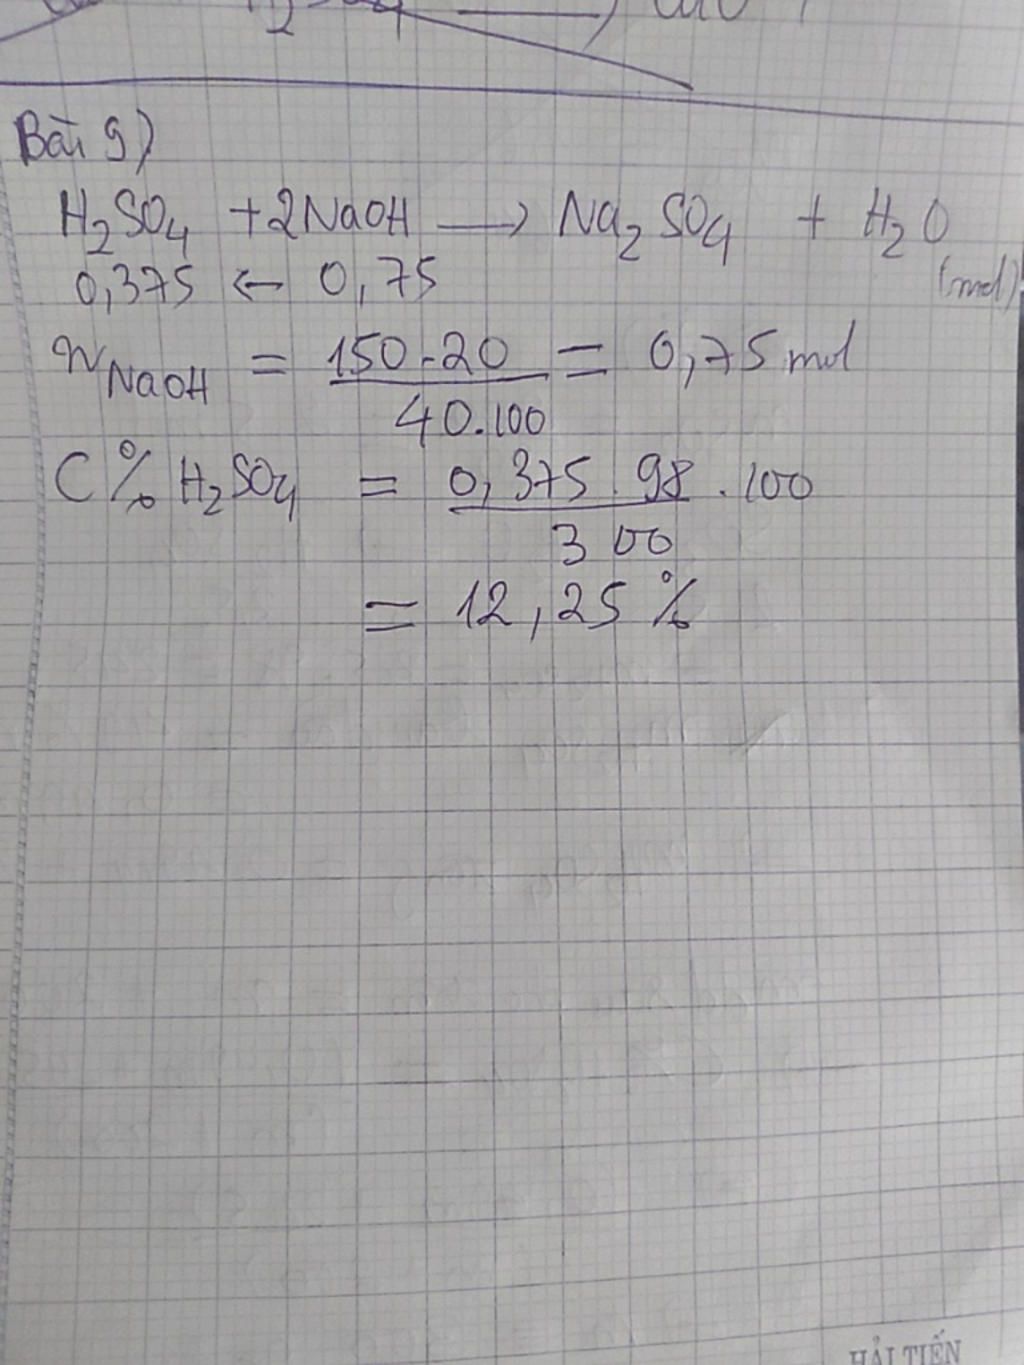 Bài 9)
H₂SO₄ + 2NaOH ⟶ Na₂SO₄ + H₂O
0,375 ← 0,75 (mol)
nNaOH = 150.20 / 40.100 = 0,75 mol
C% H₂SO₄ = 0,375.98 / 300 . 100
= 12,25 %
HẢI TIẾN